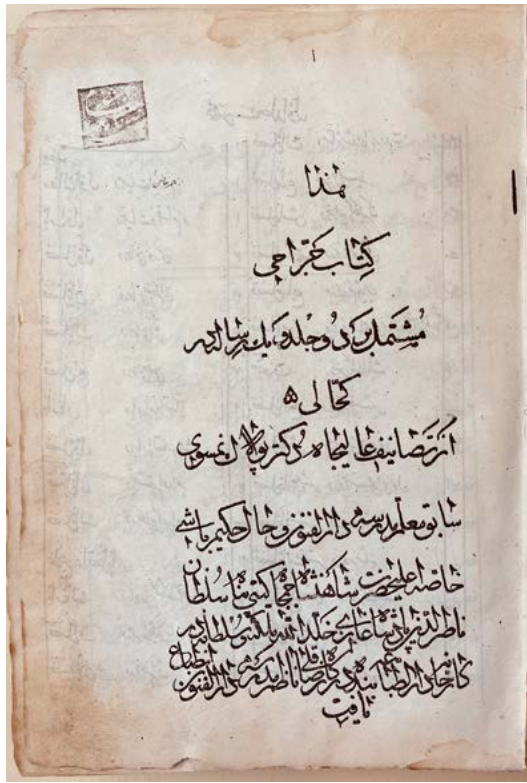 هذا
کتاب جراحی
مشتمل بر دو جلد و یک رساله در
کحالی
از تصانیف عالیجاه دکتر پولاک نمسوی
سابق معلم مدرسه دارالفنون و حال حکیمباشی
خاصه اعلیحضرت شاهنشاه جمجاه گیتی پناه سلطان
ناصرالدین شاه غازی خلد الله ملکه و سلطانه در
کارخانه دارالطباعه بنده درگاه رضا قلی ناظر مدرسه دارالفنون انطباع
یافت